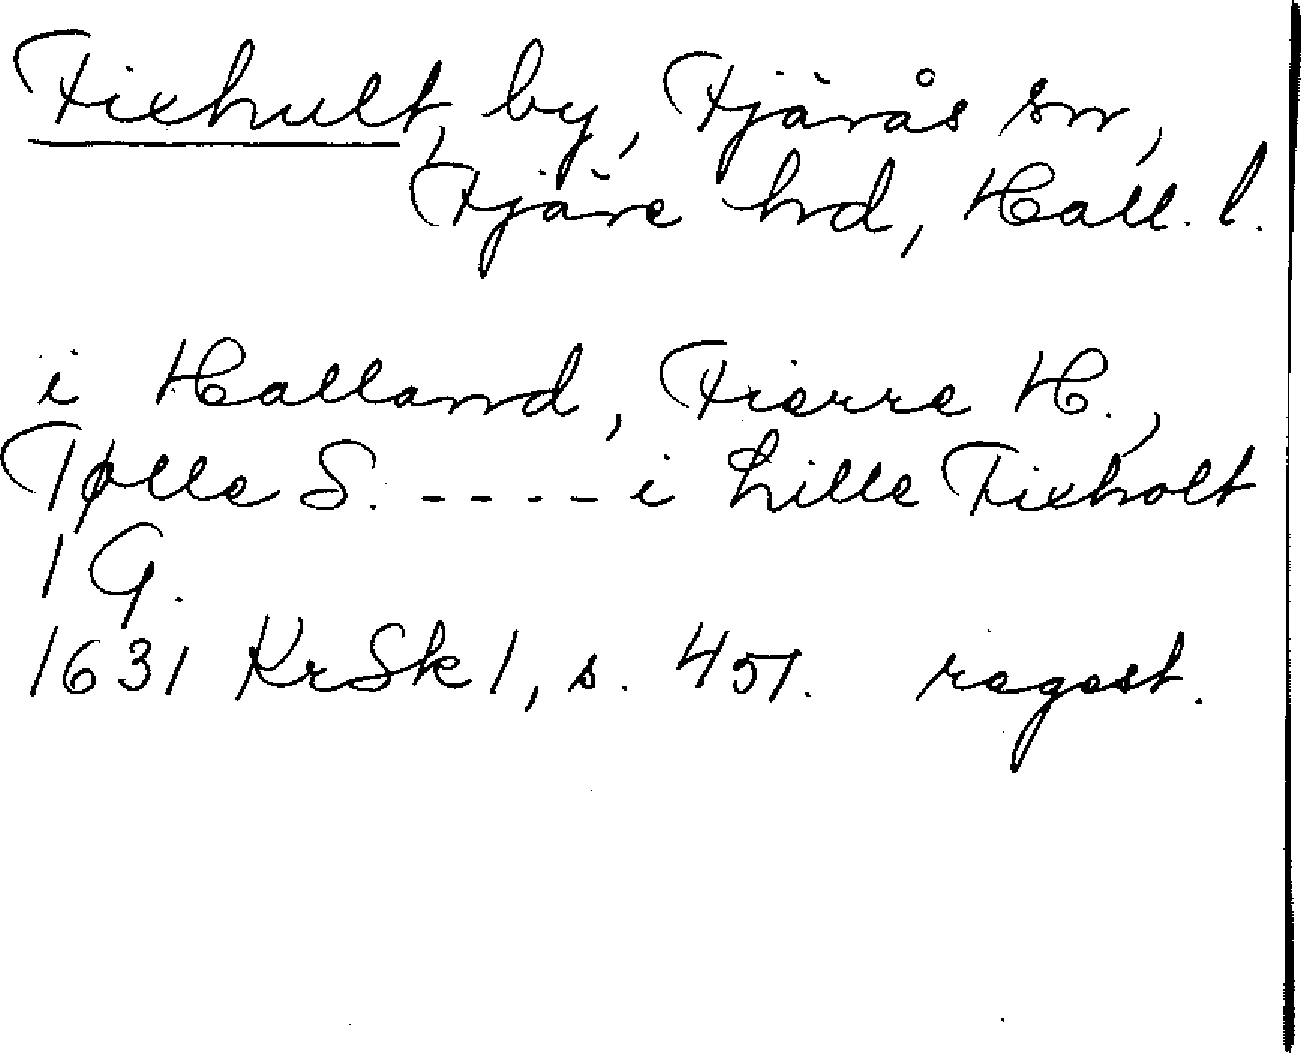 Fixhult, by, Fjärås sn,
Fjäre hd, Hall. l.
i Halland, Fierre H.,
Tølle S. ---- i Lille Fixholt
1 G.
1631 KrSk 1, s. 451. regest.